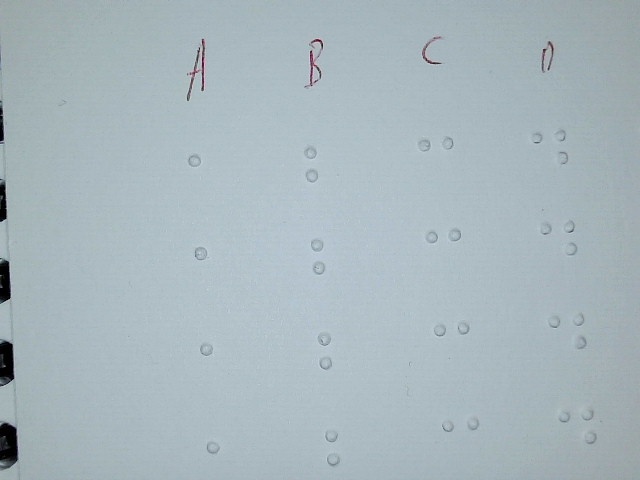 A B C D
⠁ ⠃ ⠉ ⠙
⠁ ⠃ ⠉ ⠙
⠁ ⠃ ⠉ ⠙
⠁ ⠃ ⠉ ⠙